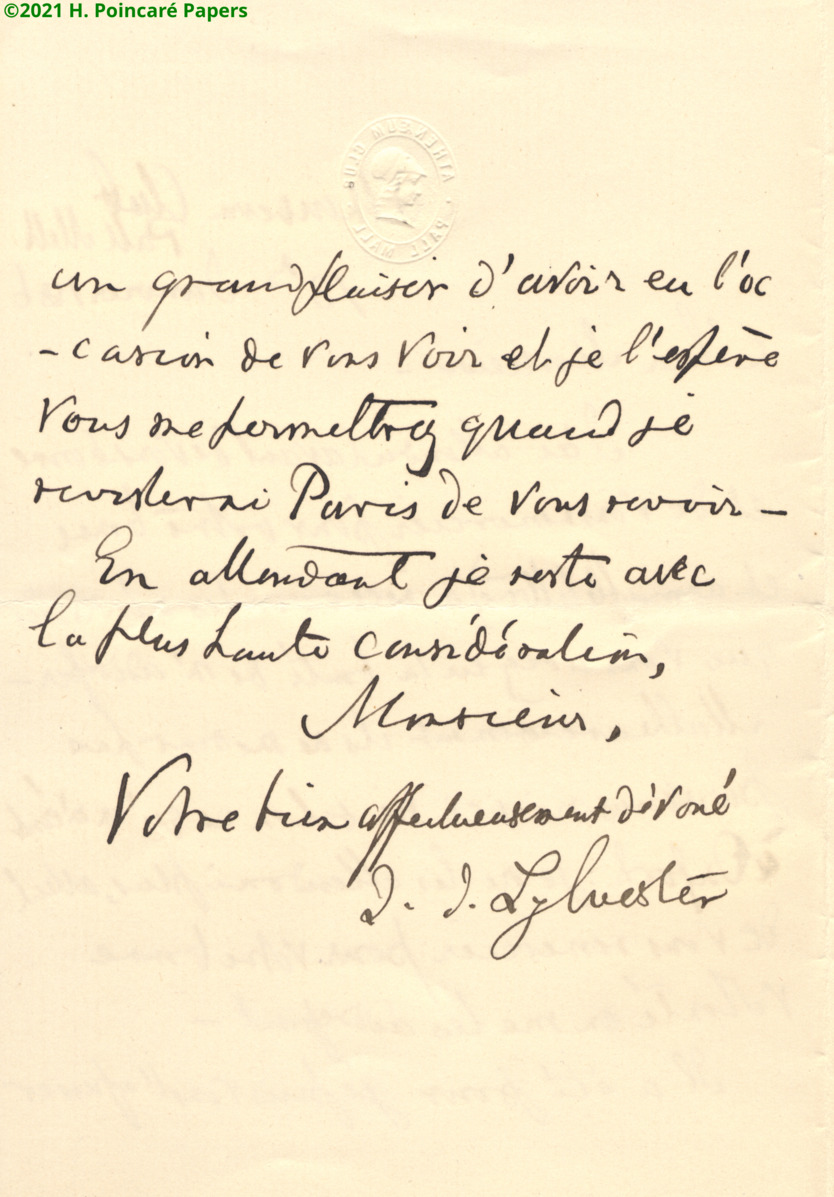 ©2021 H. Poincaré Papers
ATHENÆUM CLUB
PALL MALL
un grand plaisir d'avoir eu l'oc
-casion de vous voir et je l'espère
vous me permettrez quand je
revisterai Paris de vous revoir –
En attendant je reste avec
la plus haute considération,
Monsieur,
Votre bien affectueusement dévoué
J. J. Sylvester